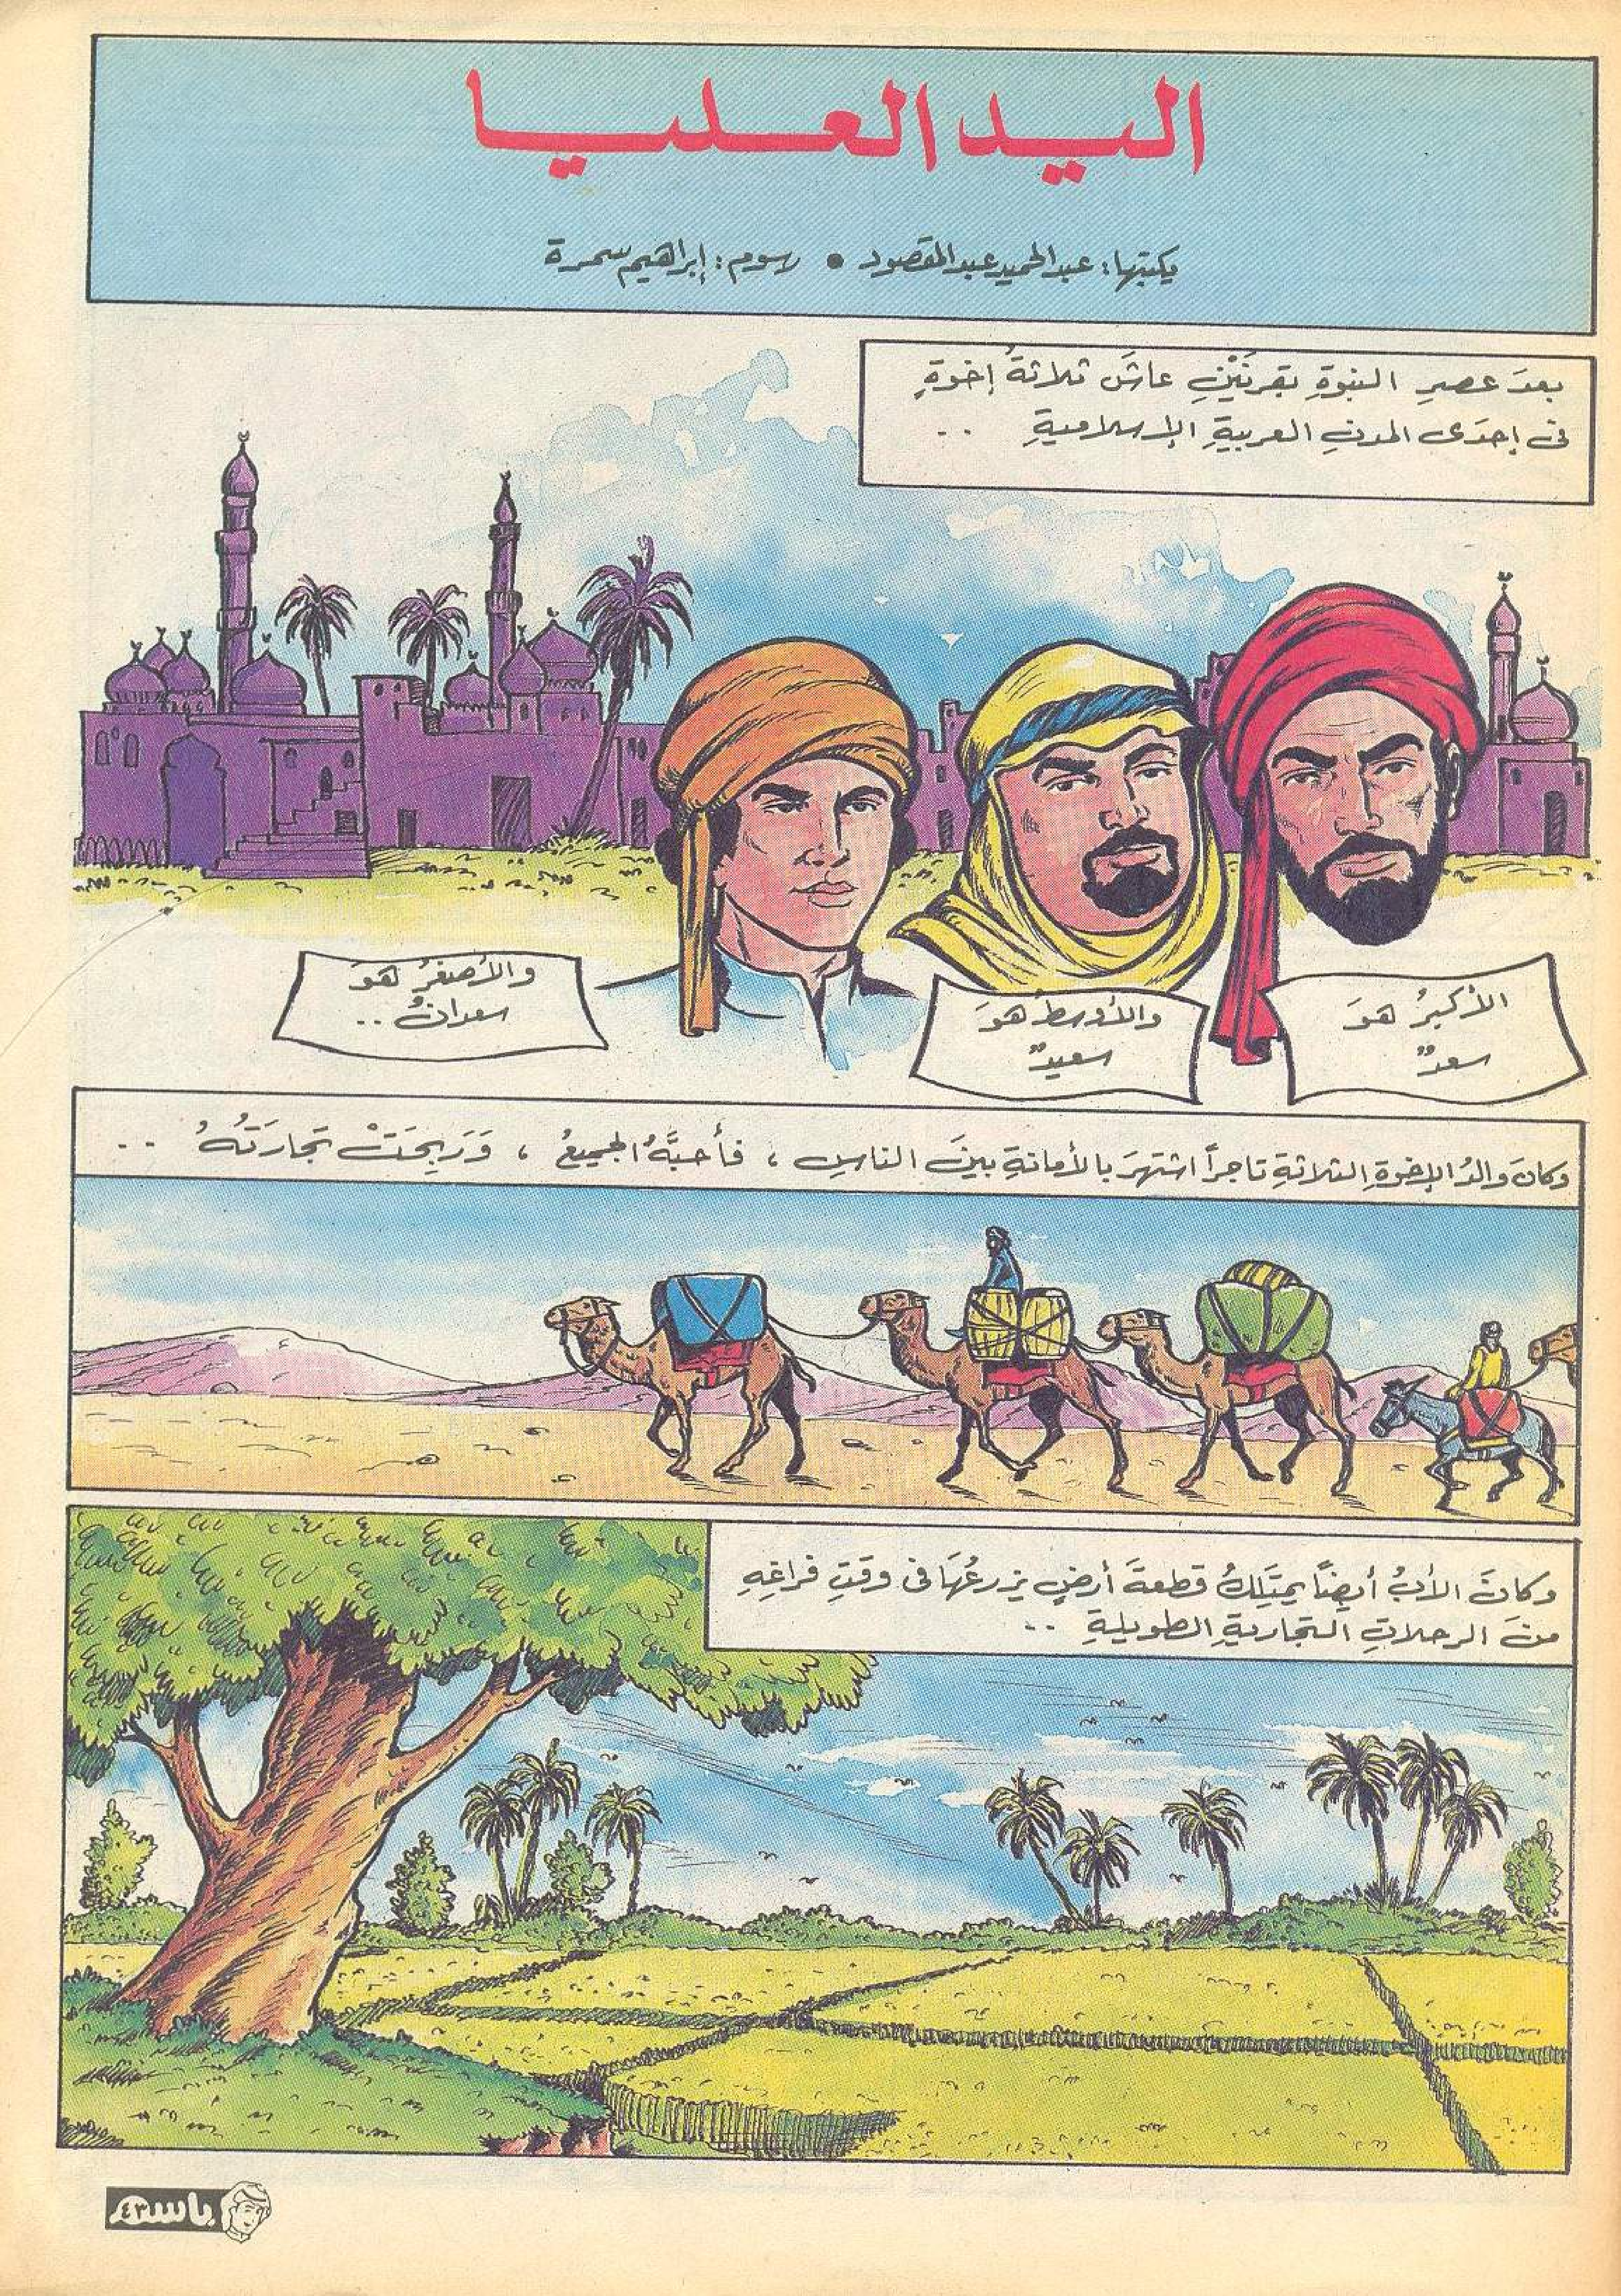 اليد العليا
يكتبها: عبدالحميد عبدالمقصود • رسوم: إبراهيم سمرة
بعدَ عصرِ النبوةِ بقرنَيْنِ عاشَ ثلاثةُ إخوةٍ
فى إحدَى المدنِ العربيةِ الإسلاميةِ ..
الأكبرُ هوَ
سعدٌ
والأوسطُ هوَ
سعيدٌ
والأصغرُ هوَ
سعدانُ ..
وكانَ والدُ الإخوةِ الثلاثةِ تاجراً اشتهرَ بالأمانةِ بينَ الناسِ ، فأحبَّهُ الجميعُ ، وَرَبِحَتْ تجارَتُهُ ..
وكانَ الأبُ أيضاً يمتَلِكُ قطعةَ أرضٍ يزرعُهَا فى وقتِ فراغِهِ
منَ الرحلاتِ التجاريةِ الطويلةِ ..
باسم
٤٣